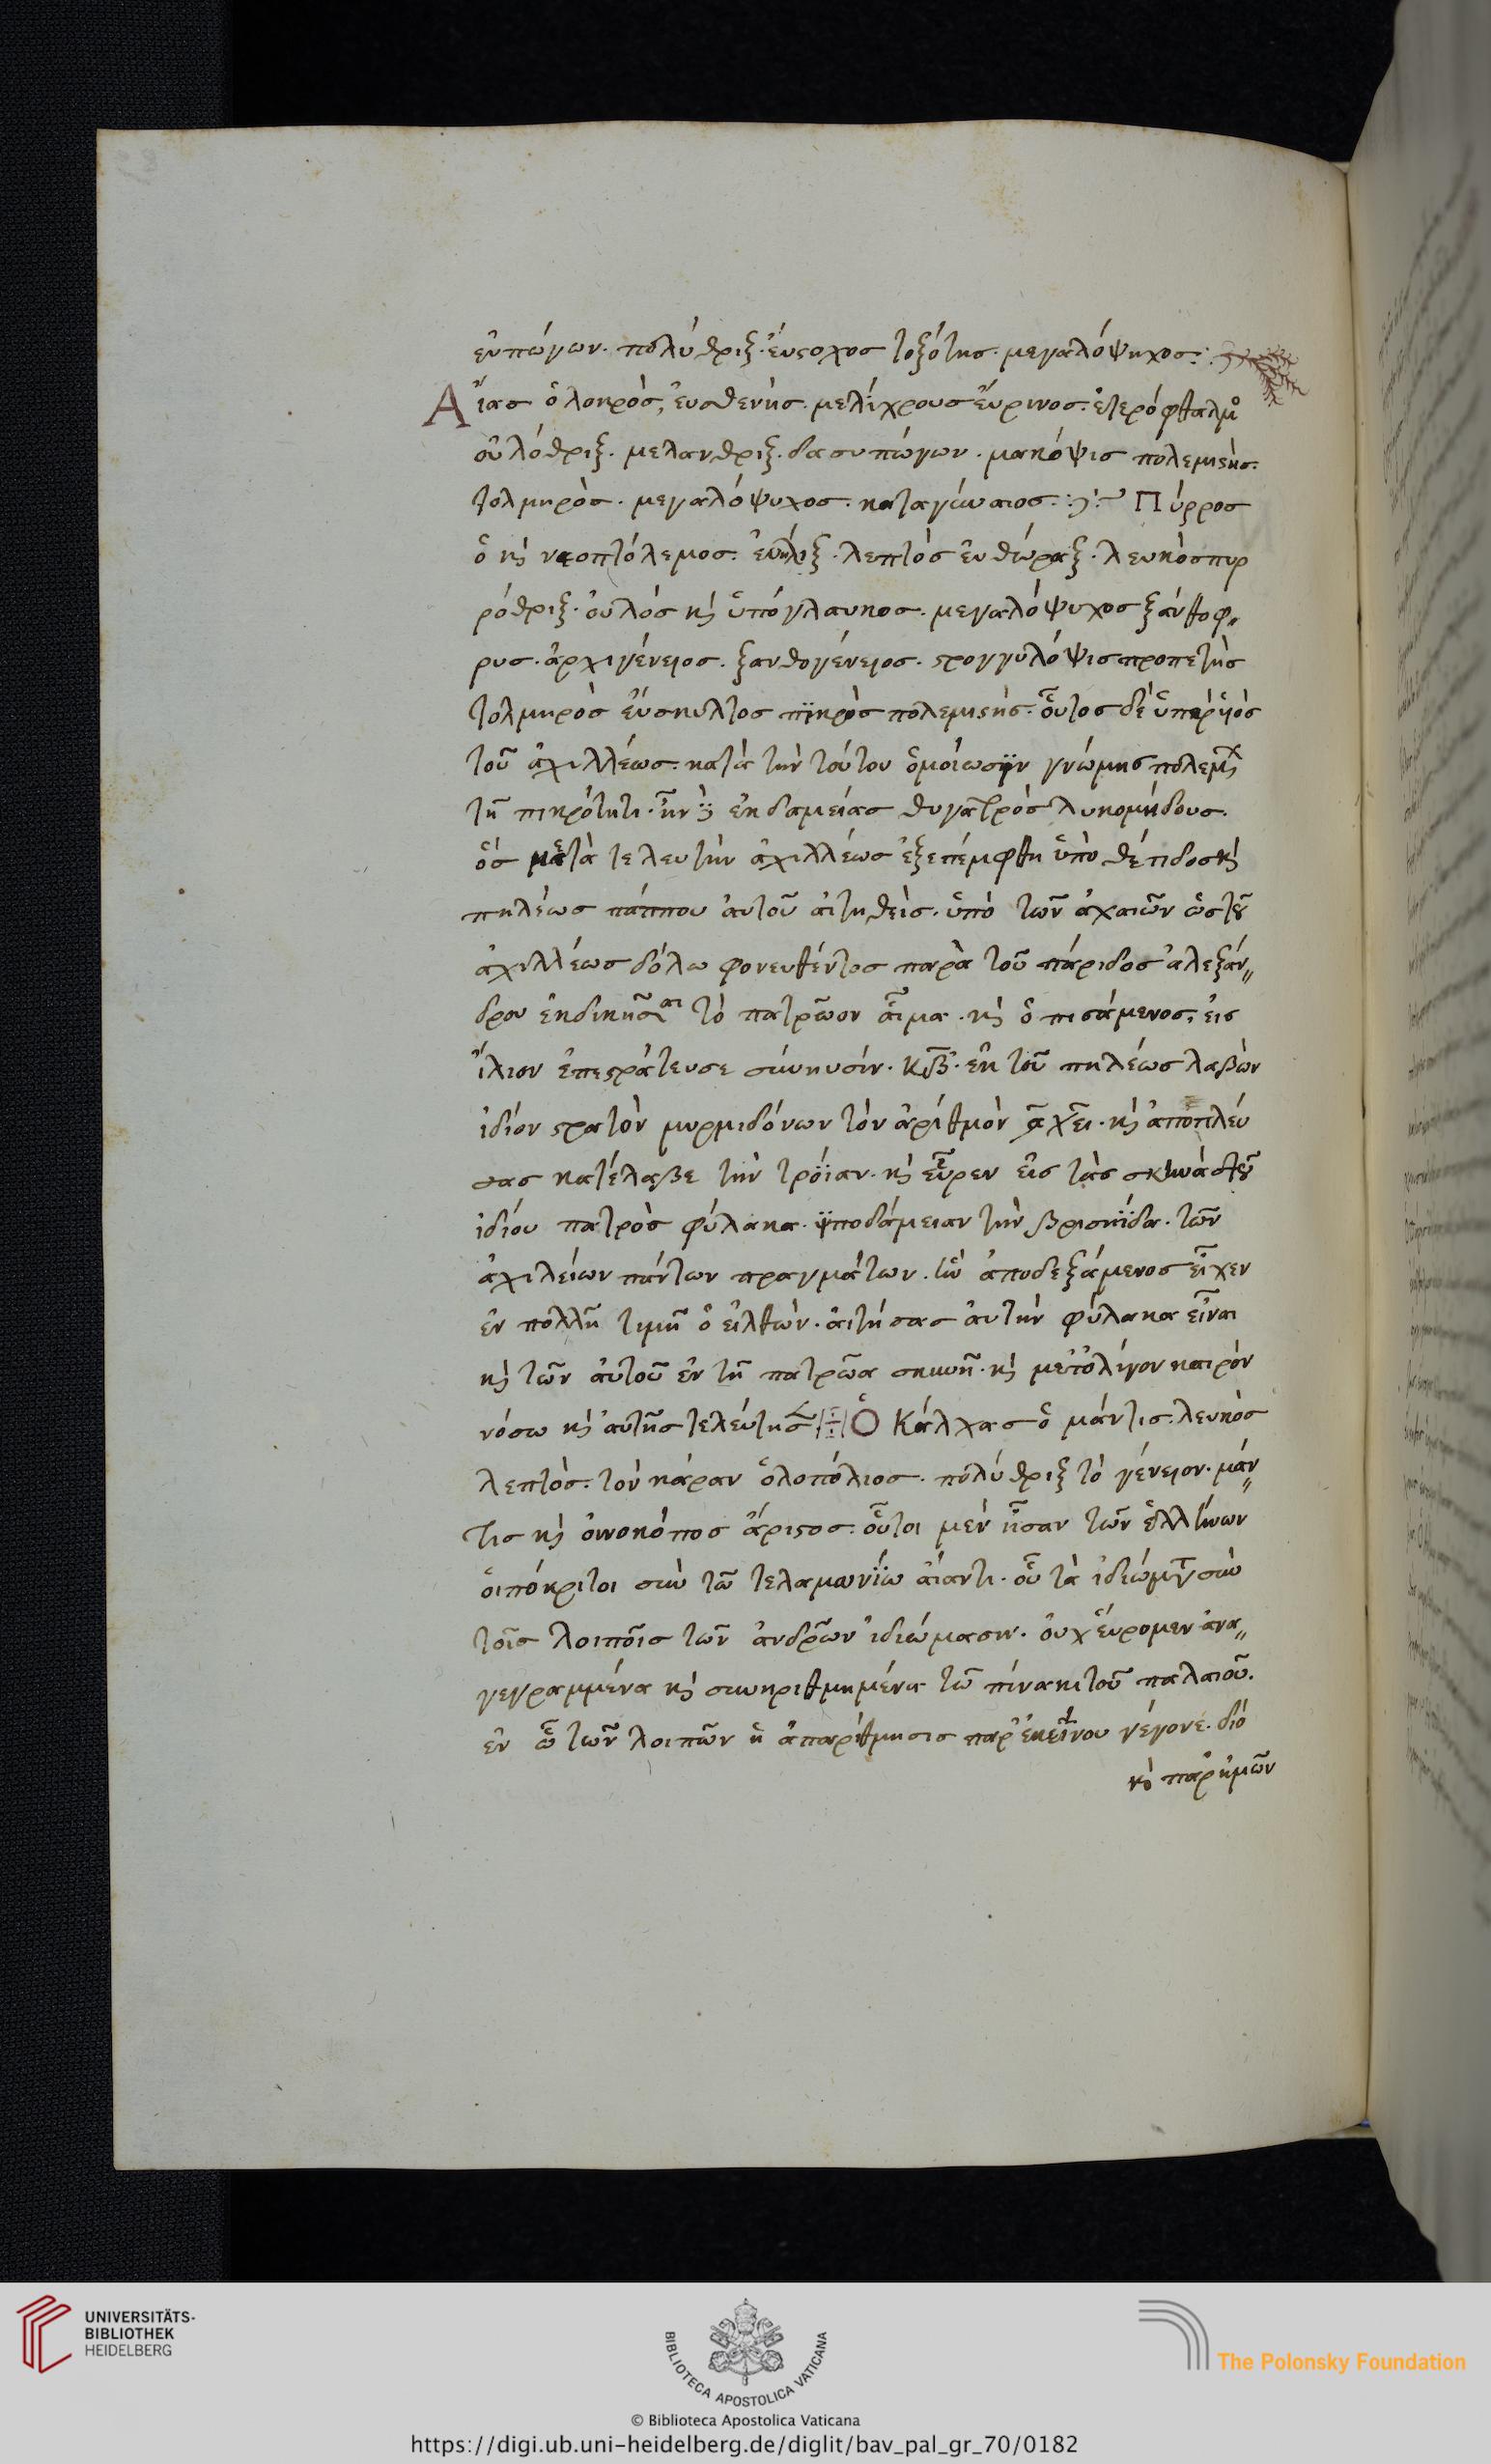 εὐπώγων. πολύθριξ. ἔυστοχος τοξότης. μεγαλόψηχος:
Αἴας ὁ λοκρὸς, ἐυσθενὴς. μελίχρους ἔυρινος. ἑτερόφθαλμος
οὐλόθριξ. μελανθριξ. δασυπώγων. μακόψις πολεμιστὴς.
τολμηρὸς. μεγαλόψυχος. καταγύναιος. Πύρρος
ὁ καὶ νεοπτόλεμος. ἐυῆλιξ. λεπτὸς ἐυθώραξ. λευκὸς πυρ
ρόθριξ. ὀυλὸς καὶ ὑπόγλαυκος. μεγαλόψυχος ξάνθοφ
ρυς. ἀρχιγένειος. ξανθογένειος. στρογγυλόψις προπετὴς
τολμηρὸς εὔσκυλτος πϊκρὸς πολεμιστής. οὗτος δὲ ὑπῆρχ ὑιὸς
τοῦ ἀχιλλέως. κατὰ τὴν τούτου ὁμοίωσϊν γνώμης πολεμικ
τῆ πικρότητι. ἦν ἐκ δαμείας θυγατρὸς λυκομήδους.
ὅς μετὰ τελευτὴν ἀχιλλέως ἐξεπέμφθη ὑπὸ θέτιδος καὶ
πηλέως πάππου ἀυτοῦ ἀιτηθεὶς. ὑπὸ τῶν ἀχαιῶν ὡς τοῦ
ἀχιλλέως δόλω φονευθέντος παρὰ τοῦ πάριδος ἀλεξάν
δρου ἐκδικῆσαι τὸ πατρῶον αἷμα. καὶ ὁπισάμενος, εἰς
ἴλιον ἐπεστράτευσε σύνηυσίν. κβ. ἐκ τοῦ πηλέως λαβὼν
ἰδίον στρατὸν μυρμιδόνων τὸν ἀρίθμὸν ͵αχει. καὶ ἀποπλέυ
σας κατέλαβε τὴν τρόϊαν. καὶ εὗρεν εἰς τὰς σκηνὰς τοῦ
ἰδίου πατρὸς φύλακα. ϊποδάμειαν τὴν βρισηΐδα. τῶν
ἀχιλείων πάντων πραγμάτων. ἣν ἀποδεξάμενος εἶχεν
ἐν πολλῆ τιμῆ ὁ εἰλθών. ἀιτήσας ἀυτὴν φύλακα εἶναι
καὶ τῶν ἀυτοῦ ἐν τῆ πατρῶα σκηνῆ. καὶ μετ' ὀλίγον καιρὸν
νόσω καὶ ἀυτῆς τελέυτησ Ὁ Κάλχας ὁ μάντις. λευκὸς
λεπτὸς. τὸν κάραν ὁλοπόλιος. πολύθριξ τὸ γένειον. μάν
τις καὶ ὀινοκόπος ἄριστος. οὗτοι μὲν ἦσαν τῶν ἑλλήνων
ὁι πόκριτοι σὺν τῶ τελαμωνΐω ἄιαντι. οὗ τὰ ἰδιώματ σὺν
τοῖς λοιποῖς τῶν ἀνδρῶν ἰδιώμασιν. ὀυχ ἕυρομεν ἀνα
γεγραμμένα καὶ συνηριθμημένα τῶ πίνακι τοῦ παλαιοῦ.
ἐν ὧ τῶν λοιπῶν ἡ ἀπαρίθμησις παρ' ἐκείνου γέγονέ. διὸ
καὶ παρ' ἡμῶν
UNIVERSITÄTS-
BIBLIOTHEK
HEIDELBERG
BIBLIOTECA APOSTOLICA VATICANA
The Polonsky Foundation
© Biblioteca Apostolica Vaticana
https://digi.ub.uni-heidelberg.de/diglit/bav_pal_gr_70/0182